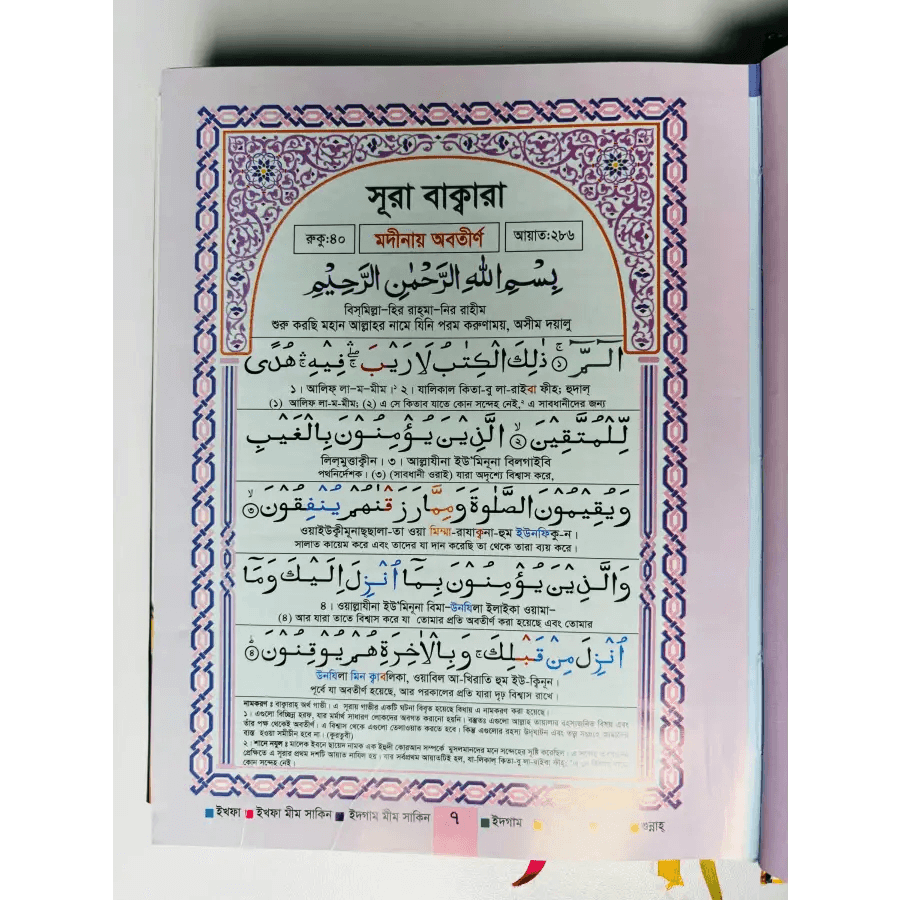 সূরা বাক্বারা
রুকু:৪০ মদীনায় অবতীর্ণ আয়াত:২৮৬
بِسْمِ اللهِ الرَّحْمٰنِ الرَّحِيْمِ
বিস্‌মিল্লা–হির রাহ্‌মা–নির রাহীম
শুরু করছি মহান আল্লাহর নামে যিনি পরম করুণাময়, অসীম দয়ালু
الٓـمّٓ ۚ﴿١﴾ ذٰلِكَ الْكِتٰبُ لَا رَيْبَ ۛۖۚ فِيْهِ ۛۚ هُدًى
১। আলিফ্ লা–ম–মীম।১ ২। যালিকাল কিতা–বু লা–রাইবা ফীহ; হুদাল্
(১) আলিফ লা-ম-মীম; (২) এ সে কিতাব যাতে কোন সন্দেহ নেই,২ এ সাবধানীদের জন্য
لِّلْمُتَّقِيْنَ ۙ﴿٢﴾ الَّذِيْنَ يُؤْمِنُوْنَ بِالْغَيْبِ
লিল্‌মুত্তাক্বীন। ৩। আল্লাযীনা ইউ'মিনূনা বিলগাইবি
পথনির্দেশক। (৩) (সাবধানী ওরাই) যারা অদৃশ্যে বিশ্বাস করে,
وَيُقِيْمُوْنَ الصَّلٰوةَ وَمِمَّا رَزَقْنٰهُمْ يُنْفِقُوْنَ ۙ﴿٣﴾
ওয়াইউক্বীমূনাছ্ছালা-তা ওয়া মিম্মা-রাযাক্বনা-হুম ইউনফিকূ-ন।
সালাত কায়েম করে এবং তাদের যা দান করেছি তা থেকে তারা ব্যয় করে।
وَالَّذِيْنَ يُؤْمِنُوْنَ بِمَآ اُنْزِلَ اِلَيْكَ وَمَآ
৪। ওয়াল্লাযীনা ইউ'মিনূনা বিমা–উনযিলা ইলাইকা ওয়ামা–
(৪) আর যারা তাতে বিশ্বাস করে যা তোমার প্রতি অবতীর্ণ করা হয়েছে এবং তোমার
اُنْزِلَ مِنْ قَبْلِكَ ۚ وَبِالْاٰخِرَةِ هُمْ يُوْقِنُوْنَ ؕ﴿٤﴾
উনযিলা মিন ক্বাবলিকা, ওয়াবিল আ-খিরাতি হুম ইউ-ক্বিনূন।
পূর্বে যা অবতীর্ণ হয়েছে, আর পরকালের প্রতি যারা দৃঢ় বিশ্বাস রাখে।
নামকরণ : বাক্বারাহ্ অর্থ গাভী। এ সূরায় গাভীর একটি ঘটনা বিবৃত হয়েছে বিধায় এ নামকরণ করা হয়েছে।
১। এগুলো বিচ্ছিন্ন হরফ, যার মর্মার্থ সাধারণ লোকদের অবগত করানো হয়নি। বস্তুতঃ এগুলো আল্লাহ তায়ালার রহস্যজনিত বিষয় এবং
তাঁর পক্ষ থেকেই অবতীর্ণ। এ বিশ্বাস থেকে এগুলো তেলাওয়াত করতে হবে। কিন্তু এগুলোর রহস্য উদ্ঘাটন এবং তত্ত্ব
ব্যস্ত হওয়া সমীচীন হবে না। (কুরতুবী)
২। শানে নযুল : মালেক ইবনে ছায়েদ নামক এক ইহুদী কোরআন সম্পর্কে মুসলমানদের মনে সন্দেহের সৃষ্টি করেছিল।
প্রেক্ষিতে এ সূরার প্রথম দশটি আয়াত নাযিল হয়। যার সর্বপ্রথম আয়াতটিই হল, যা-লিকাল্ কিতা-বু লা-রাইবা ফীহ্;
কোন সন্দেহ নেই।
ইখফা ইখফা মীম সাকিন ইদগাম মীম সাকিন ৭ ইদগাম গুন্নাহ্